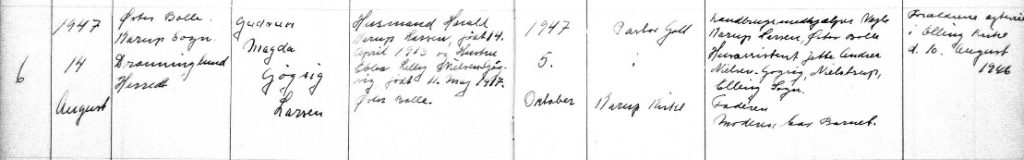 6
1947
14
August
Øster Bolle.
Karup Sogn.
Dronninglund
Herred
Gudrun
Magda
Gögsig
Larsen
Husmand Harald
Karup Larsen, födt 14.
April 1913 og Hustru
Ebba Kelly Nielsen Gög-
sig födt 11. Maj 1917.
Øster Bolle.
1947
5.
Oktober
Pastor Gott
"
Karup Kirke
Landbrugsmedhjælper Vagle
Karup Larsen, Øster Bolle
Husassistent Jytte Andrea
Nielsen Gögsig, Nielstrup,
Elling Sogn.
Faderen
Moderen bar Barnet.
Forældrene ægteviet
i Elling Kirke
d. 10. August
1946